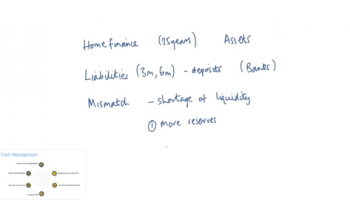 Home finance (25 years) Assets
Liabilities (3m, 6m) - deposits (Banks)
Mismatch - shortage of liquidity
① more reserves
Cash Management